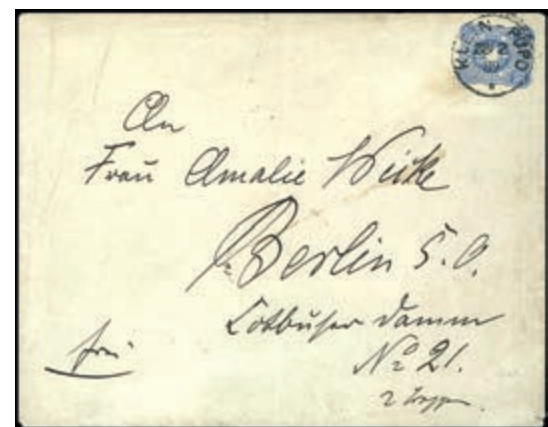 KLEIN-POPO
An
Frau Amalie Weike
Berlin S.O.
Cotbuser Damm
No 21.
2 Treppen.
frei